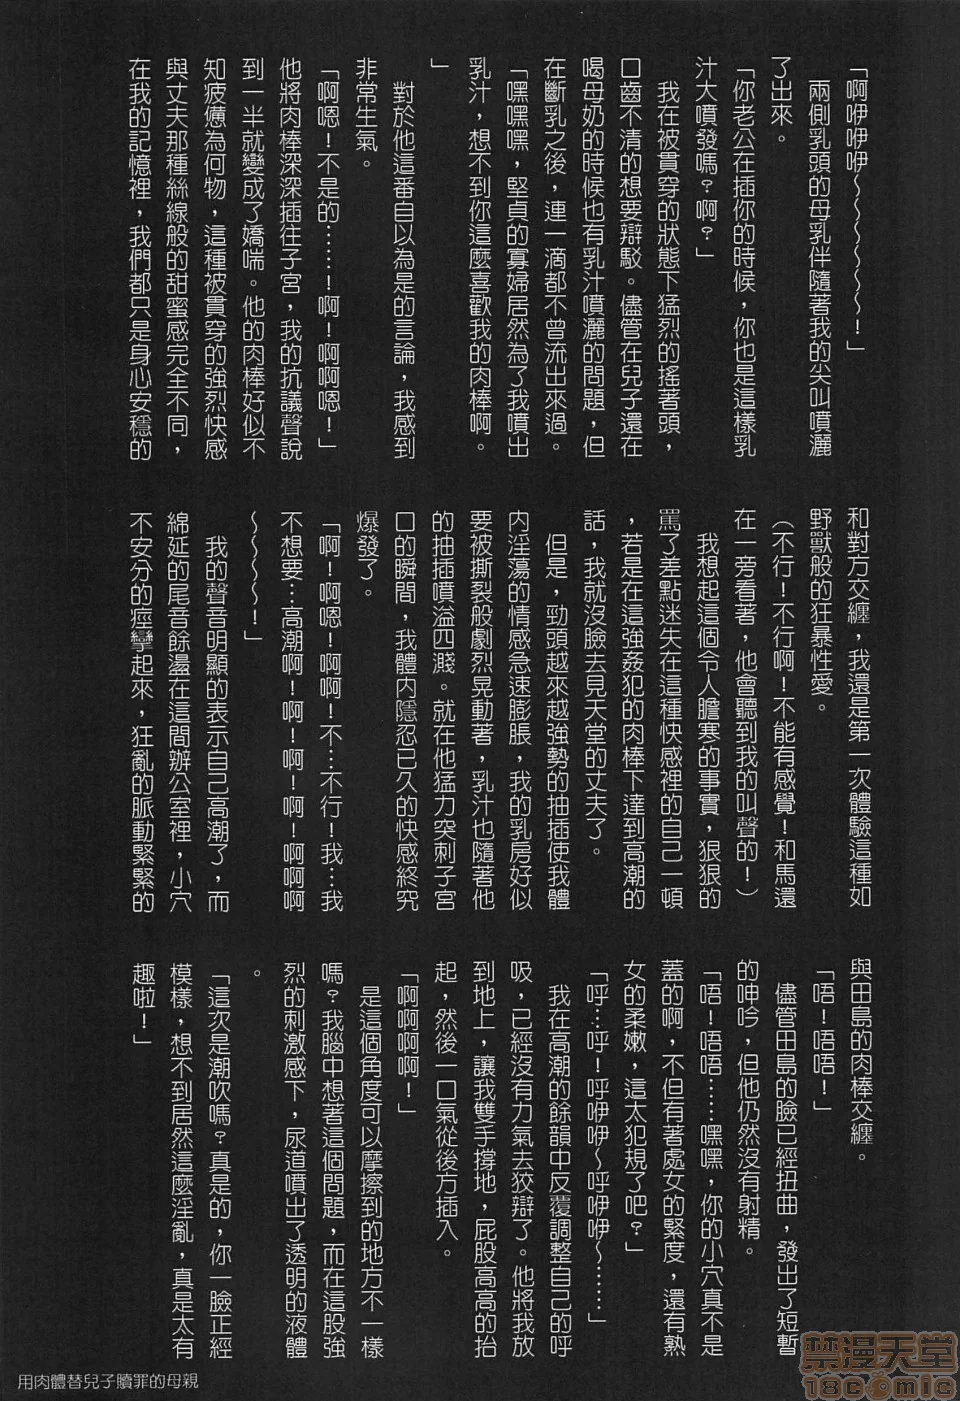 「啊咿咿咿～～～～～～！」
　兩側乳頭的母乳伴隨著我的尖叫噴灑
了出來。
「你老公在插你的時候，你也是這樣乳
汁大噴發嗎？啊？」
　我在被貫穿的狀態下猛烈的搖著頭，
口齒不清的想要辯駁。儘管在兒子還在
喝母奶的時候也有乳汁噴灑的問題，但
在斷乳之後，連一滴都不曾流出來過。
「嘿嘿嘿，堅貞的寡婦居然為了我噴出
乳汁，想不到你這麼喜歡我的肉棒啊。
」
　對於他這番自以為是的言論，我感到
非常生氣。
「啊嗯！不是的……！啊！啊啊嗯！」
他將肉棒深深插往子宮，我的抗議聲說
到一半就變成了嬌喘。他的肉棒好似不
知疲憊為何物，這種被貫穿的強烈快感
與丈夫那種絲線般的甜蜜感完全不同，
在我的記憶裡，我們都只是身心安穩的
和對方交纏，我還是第一次體驗這種如
野獸般的狂暴性愛。
（不行！不行啊！不能有感覺！和馬還
在一旁看著，他會聽到我的叫聲的！）
　我想起這個令人膽寒的事實，狠狠的
罵了差點迷失在這種快感裡的自己一頓
，若是在這強姦犯的肉棒下達到高潮的
話，我就沒臉去見天堂的丈夫了。
　但是，勁頭越來越強勢的抽插使我體
內淫蕩的情感急速膨脹，我的乳房好似
要被撕裂般劇烈晃動著，乳汁也隨著他
的抽插噴溢四濺。就在他猛力突刺子宮
口的瞬間，我體內隱忍已久的快感終究
爆發了。
「啊！啊嗯！啊啊！不…不行！我…我
不想要…高潮啊！啊！啊！啊！啊啊啊
～～～～～！」
　我的聲音明顯的表示自己高潮了，而
綿延的尾音餘盪在這間辦公室裡，小穴
不安分的痙攣起來，狂亂的脈動緊緊的
與田島的肉棒交纏。
「唔！唔唔！」
　儘管田島的臉已經扭曲，發出了短暫
的呻吟，但他仍然沒有射精。
「唔！唔唔……嘿嘿，你的小穴真不是
蓋的啊，不但有著處女的緊度，還有熟
女的柔嫩，這太犯規了吧？」
「呼…呼！呼咿咿～呼咿咿～……」
　我在高潮的餘韻中反覆調整自己的呼
吸，已經沒有力氣去狡辯了。他將我放
到地上，讓我雙手撐地，屁股高高的抬
起，然後一口氣從後方插入。
「啊啊啊啊！」
　是這個角度可以摩擦到的地方不一樣
嗎？我腦中想著這個問題，而在這股強
烈的刺激感下，尿道噴出了透明的液體
。
「這次是潮吹嗎？真是的，你一臉正經
模樣，想不到居然這麼淫亂，真是太有
趣啦！」
用肉體替兒子贖罪的母親
禁漫天堂
18comic